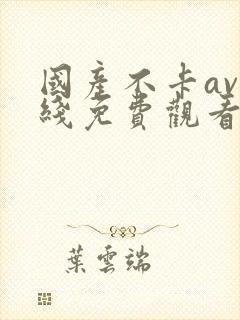 國產不卡av
綫免費觀看
葉雲端